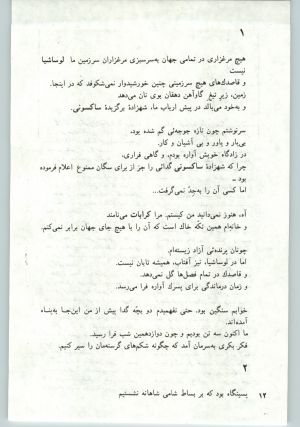 ۱
هیچ مرغزاری در تمامی جهان به‌سرسبزی مرغزاران سرزمین ما لوساشیا
نیست
و قاصدک‌های هیچ سرزمینی چنین خورشیدوار نمی‌شکوفد که در اینجا.
زمین، زیر تیغ گاوآهن دهقان بوی نان می‌دهد
و به‌خود می‌بالد در پیش ارباب ما، شهزادهٔ برگزیدهٔ ساکسونی.
سرنوشتم چون تازه جوجه‌ئی گم شده بود،
بی‌یار و یاور و بی آشیان و کار.
در زادگاه خویش آواره بودم، و گاهی فراری،
چرا که شهزادهٔ ساکسونی گدائی را جز از برای سگان ممنوع اعلام فرموده
بود ــ
اما کسی آن را به‌جد نمی‌گرفت...
آه، هنوز نمی‌دانید من کیستم. مرا کرابات می‌نامند
و خانه‌ام همین تکه خاک است که آن را با هیچ جای جهان برابر نمی‌کنم.
چونان پرنده‌ئی آزاد زیسته‌ام.
اما در لوساشیا، نیز آفتاب، همیشه تابان نیست.
و قاصدک در تمام فصل‌ها گل نمی‌دهد.
و زمان درماندگی برای پسرک آواره فرا می‌رسد.
خوابم سنگین بود، حتی نفهمیدم دو بچّه گدا پیش از من این‌جا به‌پناه
آمده‌اند.
ما اکنون سه تن بودیم و چون دوازدهمین شب فرا رسید.
فکر بکری به‌سرمان آمد که چگونه شکم‌های گرسنه‌مان را سیر کنیم.
۲
بسپنگاه بود که بر بساط شامی شاهانه نشستیم
۱۲